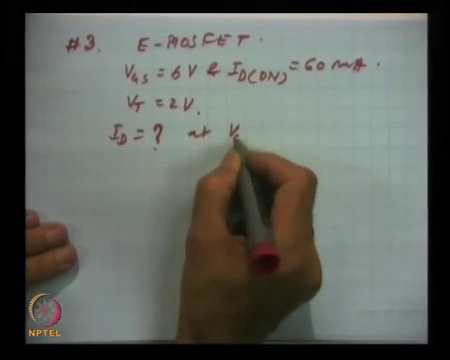 #3. E-MOSFET.
V_GS = 6 V & I_D(ON) = 60 mA.
V_T = 2 V.
I_D = ? at V
NPTEL